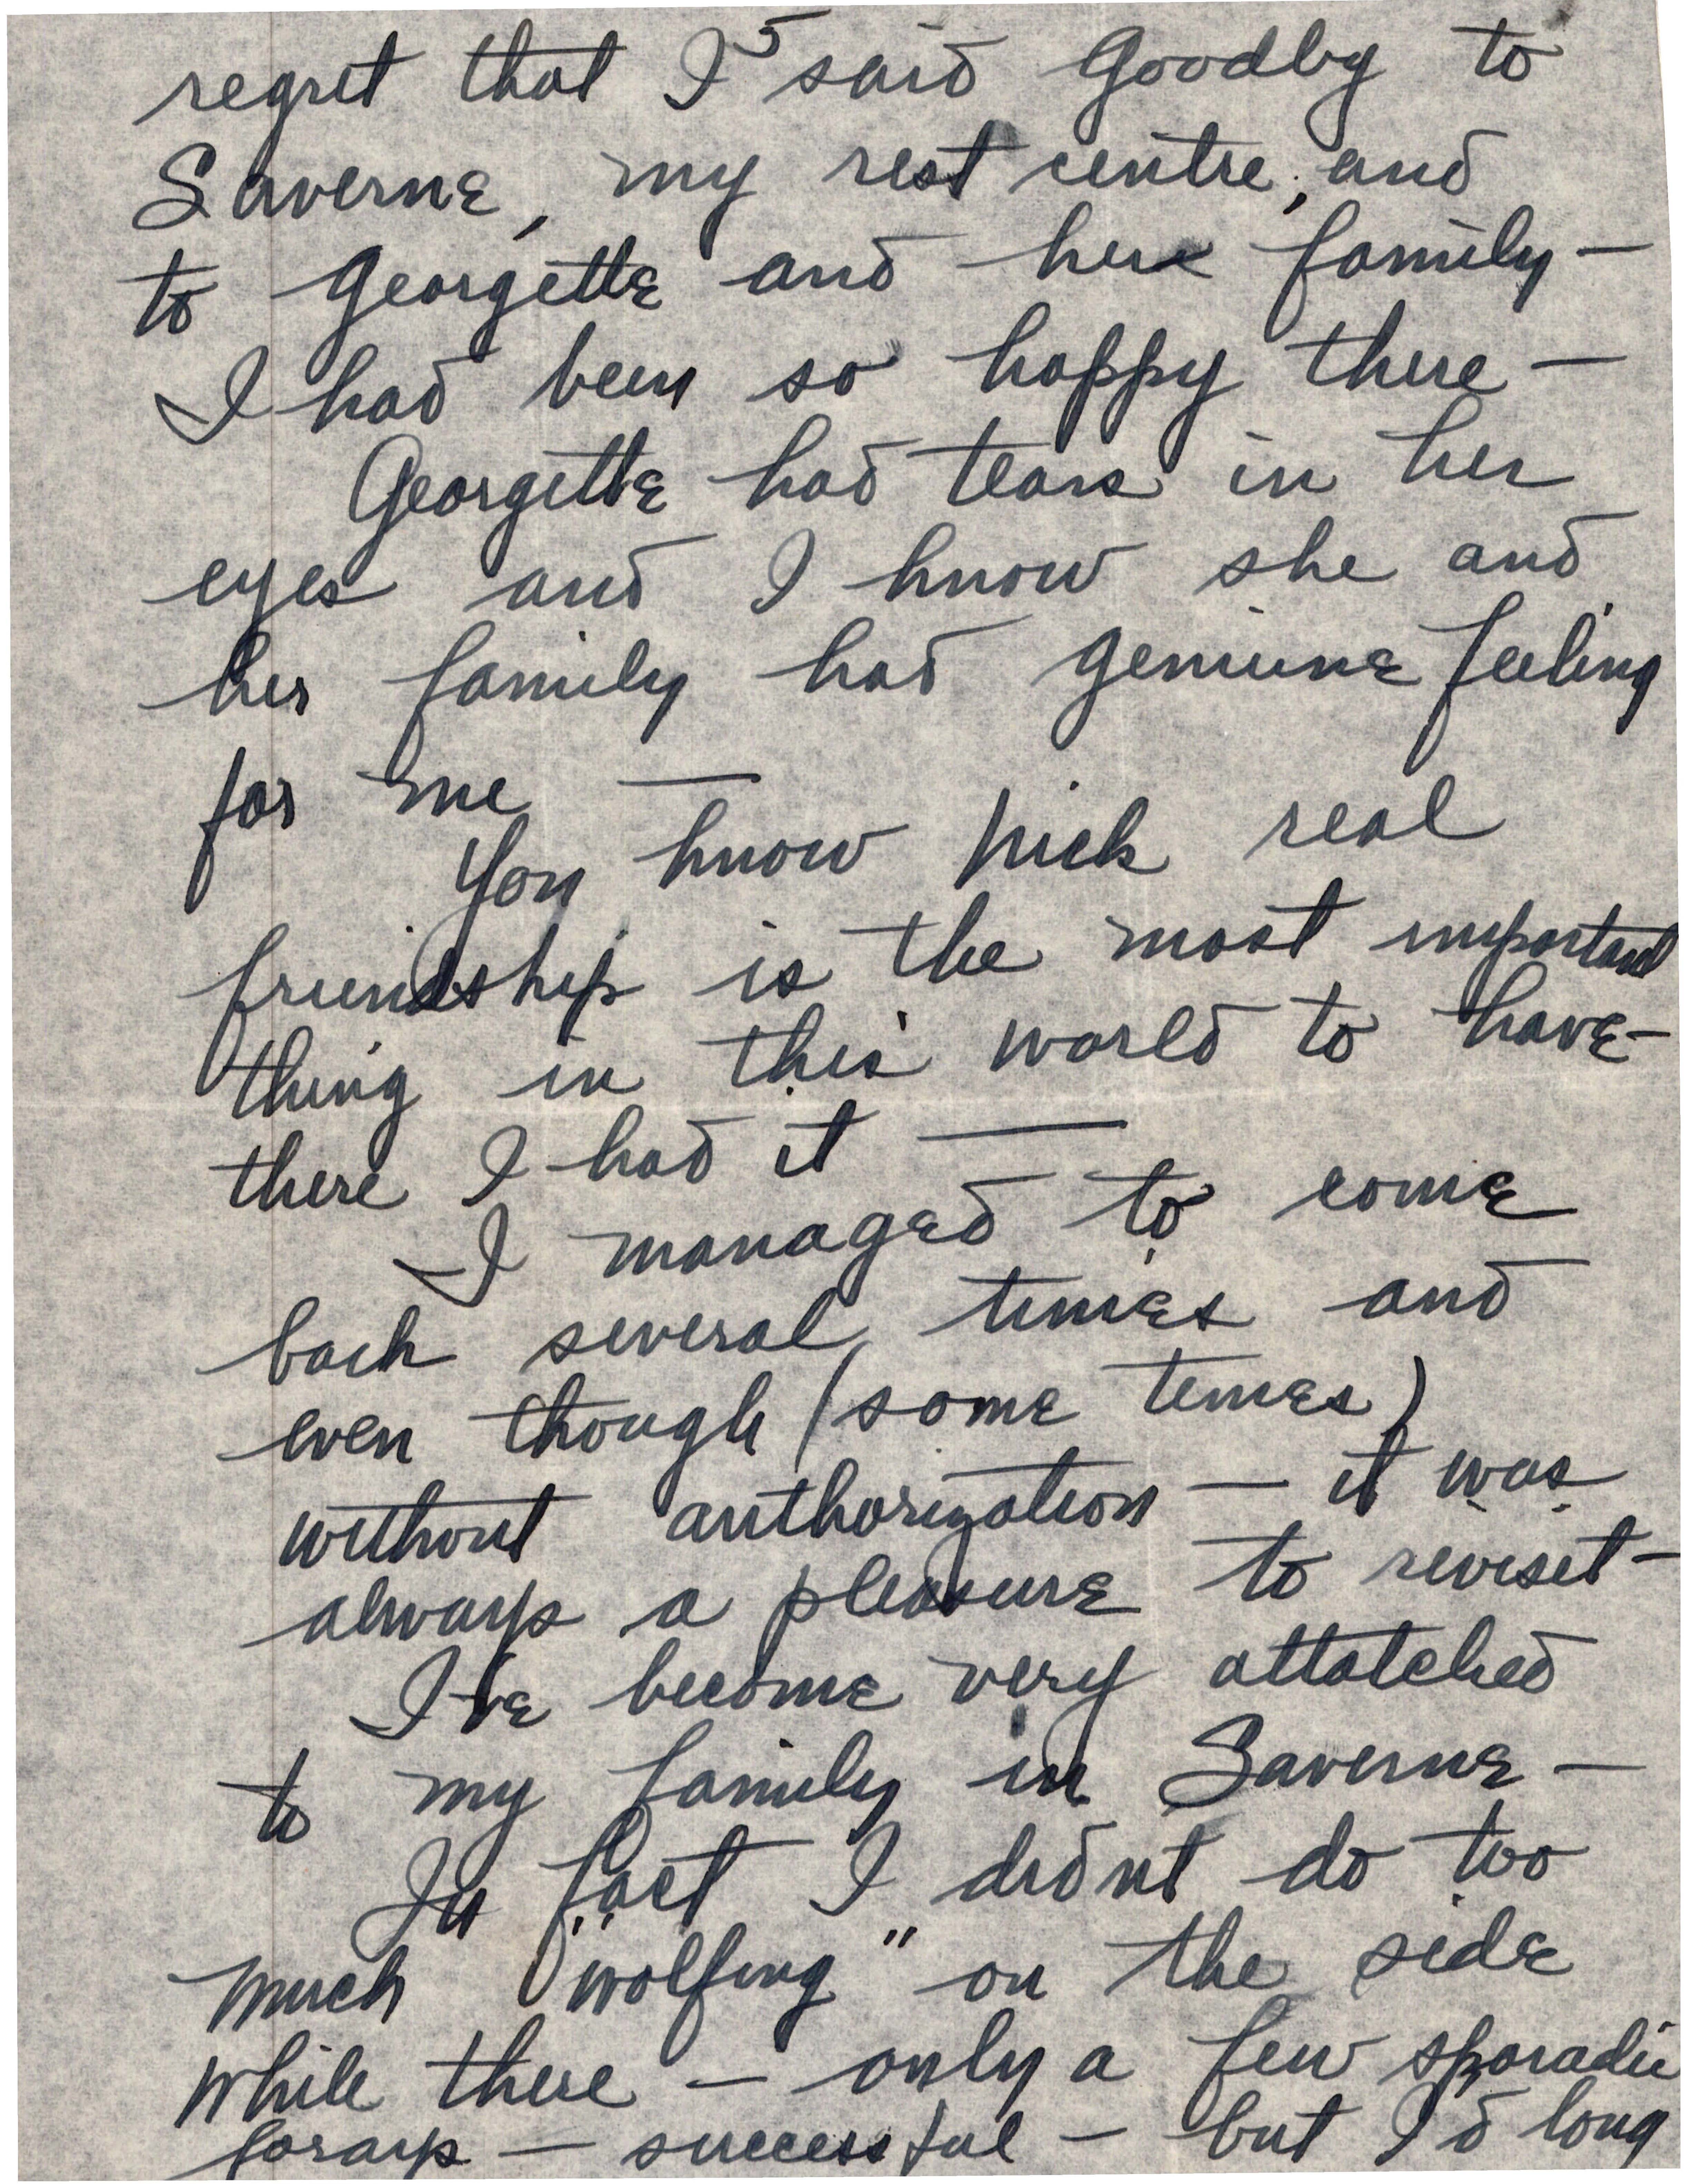 5
regret that I said Goodby to
Saverne, my rest centre, and
to Georgette and here family —
I had been so happy there —
Georgette had tears in her
eyes and I know she and
her family had geniune feeling
for me —
You know Nick real
friendship is the most important
thing in this world to have —
there I had it —
I managed to come
back several times and
even though (some times)
without authorization — it was
always a pleasure to reviset —
I've become very attatched
to my family in Saverne —
In fact I didnt do too
much "wolfing" on the side
while there — only a few sporadic
forays — successful — but I'd long